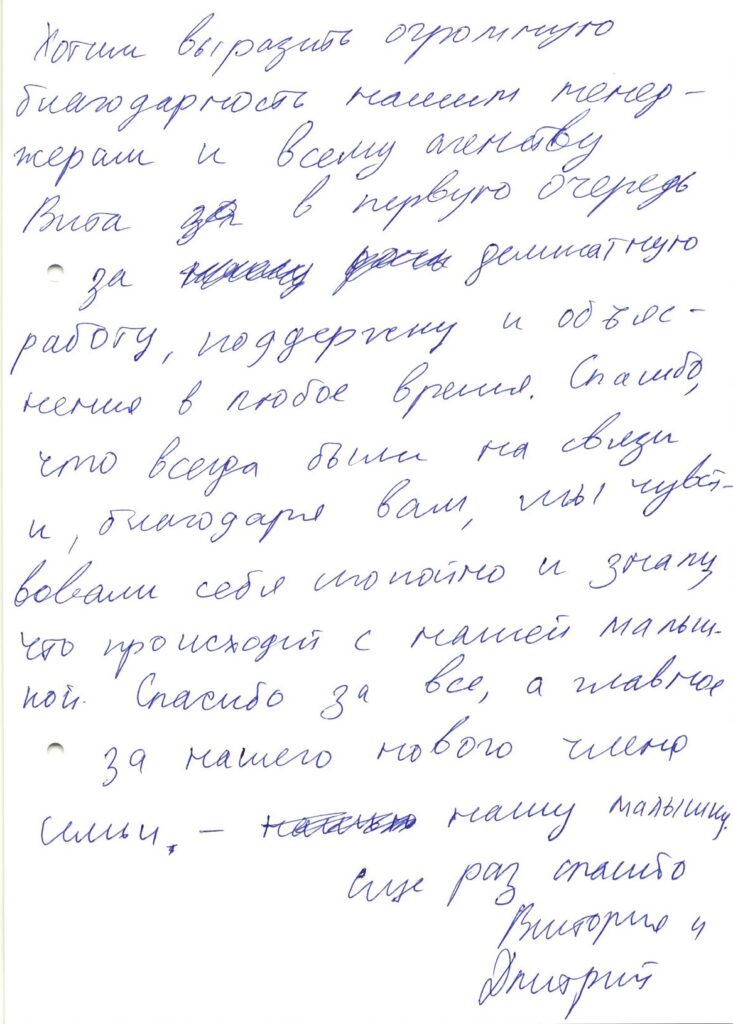 Хотим выразить огромную
благодарность нашим менед-
жерам и всему агенству
Вита за в первую очередь
за деликатную
работу, поддержку и объяс-
нения в любое время. Спасибо,
что всегда были на связи
и, благодаря вам, мы чувст-
вовали себя спокойно и знали,
что происходит с нашей малыш-
кой. Спасибо за все, а главное
за нашего нового члена
семьи, – нашу малышку.
Еще раз спасибо
Виктория и
Дмитрий